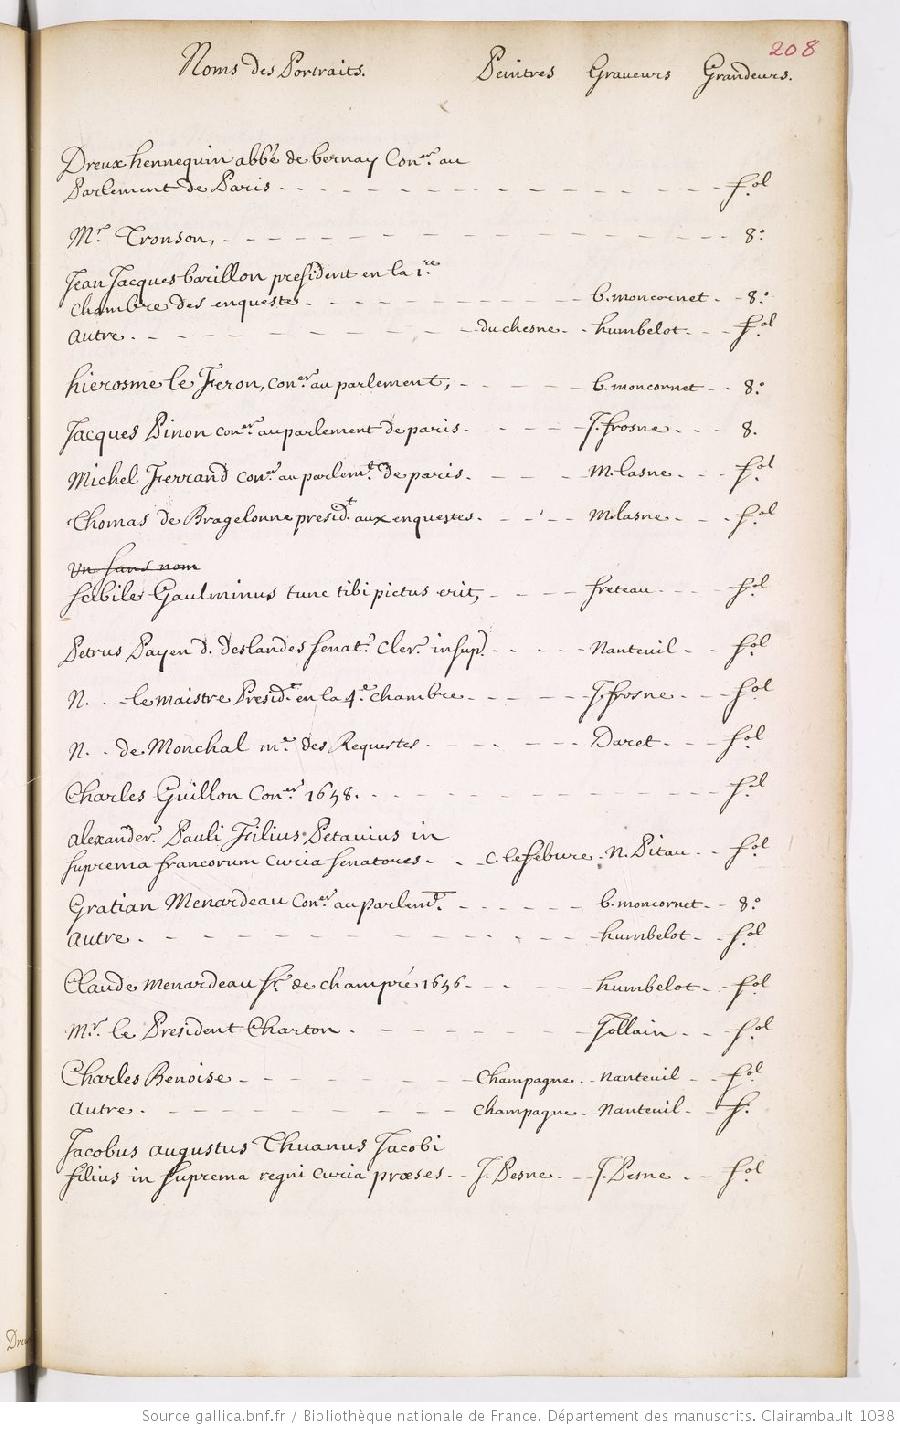 208
Noms des Portraits. Peintres Graveurs Grandeurs.
Dreux hennequin abbé de bernay Con.er au
Parlement de Paris - - - - - - - - - - fol
Mr. Tronson, - - - - - - - - - - 8.o
Jean Jacques barillon president en la 1.re
chambre des enquestes - - - - - - b. moncornet - - 8.o
autre. - - - - - - duchesne - - humbelot - - - fol
hierosme le Feron, con.er au parlement, - - - - b. moncornet - - 8.o
Jacques Pinon con.er au parlement de paris - - - - J. frosne - - - 8.
Michel Ferrand con.er au parlem.t de paris. - - - - M. lasne - - - fol
Thomas de Bragelonne presid.t aux enquestes. - - - - M. lasne - - - fol
Un sans nom
Gaulminus tunc tibi pictus erit, - - - - freteau - - - fol
Petrus Payen d. deslandes senat.r cler. in sup. - - - - Nanteuil - - fol
N. . - le maistre Presid.t en la 4.e chambre - - - - J. frosne - - - fol
N. . de Monchal m.e des Requestes - - - - Daret - - - fol
Charles Guillon Con.er 1658. - - - - - - - - fol
alexander. Pauli Filius Petavius in
suprema francorum curia senatores - - c. lefebure . N. Pitau - - fol
Gratian Menardeau con.er au parlem.t - - - - b. moncornet - - 8.o
autre - - - - - - - - humbelot - - fol
Claude menardeau sr. de champré 1656 - - - - humbelot - - fol
Mr. le President Charton - - - - - - Jollain - - fol
Charles Benoise - - - - - - Champagne - - nanteuil - - fol
autre - - - - - - - champagne - nanteuil - - f.
Jacobus augustus Thuanus Jacobi
filius in suprema regni curia præses - - J. Besne - - J. Besne - - fol
Source gallica.bnf.fr / Bibliothèque nationale de France. Département des manuscrits. Clairambault 1038